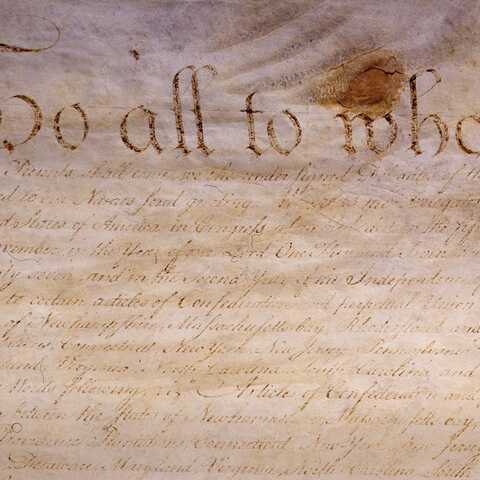 To all to who
Presents shall come, we the under signed Delegates of the
d to our Names send greeting. Whereas the Delegates
d States of America in Congress assembled did on the fif
ovember in the Year of our Lord One Thousand Seven Hun
ty seven, and in the Second Year of the Independence
to certain articles of Confederation and perpetual Union
of Newhampshire, Massachusetts-bay, Rhodeisland and
Connecticut, New York, New Jersey, Pennsylvania
Virginia, North-Carolina, South-Carolina, and
Words following, viz. "Articles of Confederation and
between the States of Newhampshire, Massachusetts-bay,
Providence Plantations, Connecticut, New York, New Jersey
Delaware, Maryland, Virginia, North-Carolina, South